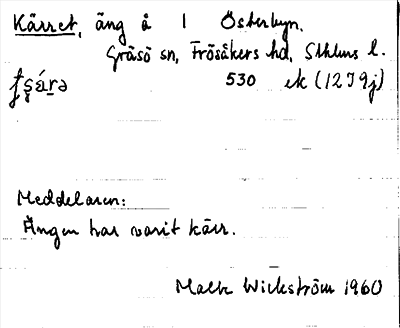 Kärret, äng å 1 Österbyn.
Gräsö sn, Frösåkers hd, Sthlms l.
530 ek (12I9j)
Meddelaren:
Ängen har varit kärr.
Wickström 1960